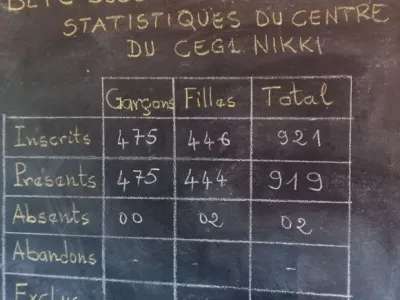 STATISTIQUES DU CENTRE
DU CEG1 NIKKI
Garçons Filles Total
Inscrits 475 446 921
Présents 475 444 919
Absents 00 02 02
Abandons - - -